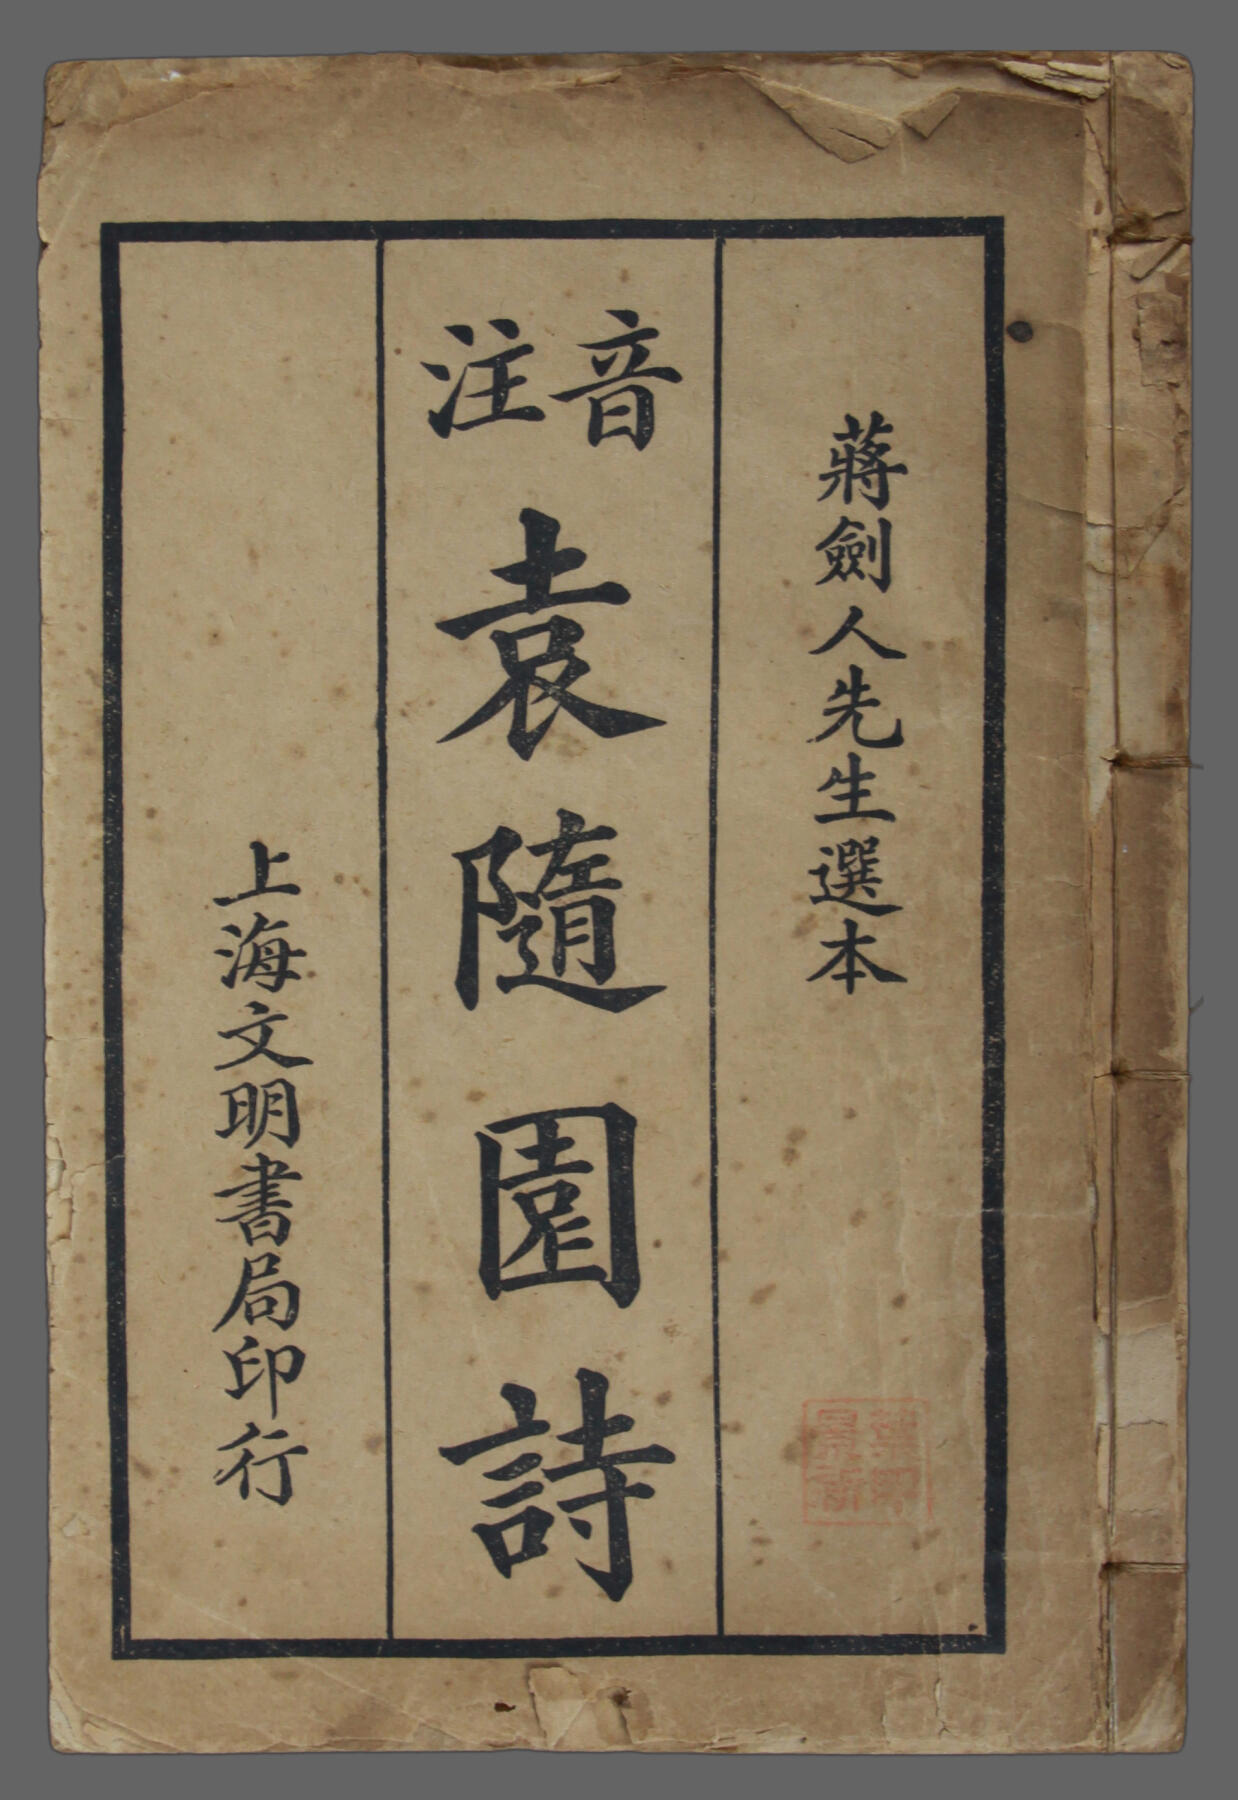 蔣劍人先生選本
音注袁隨園詩
上海文明書局印行